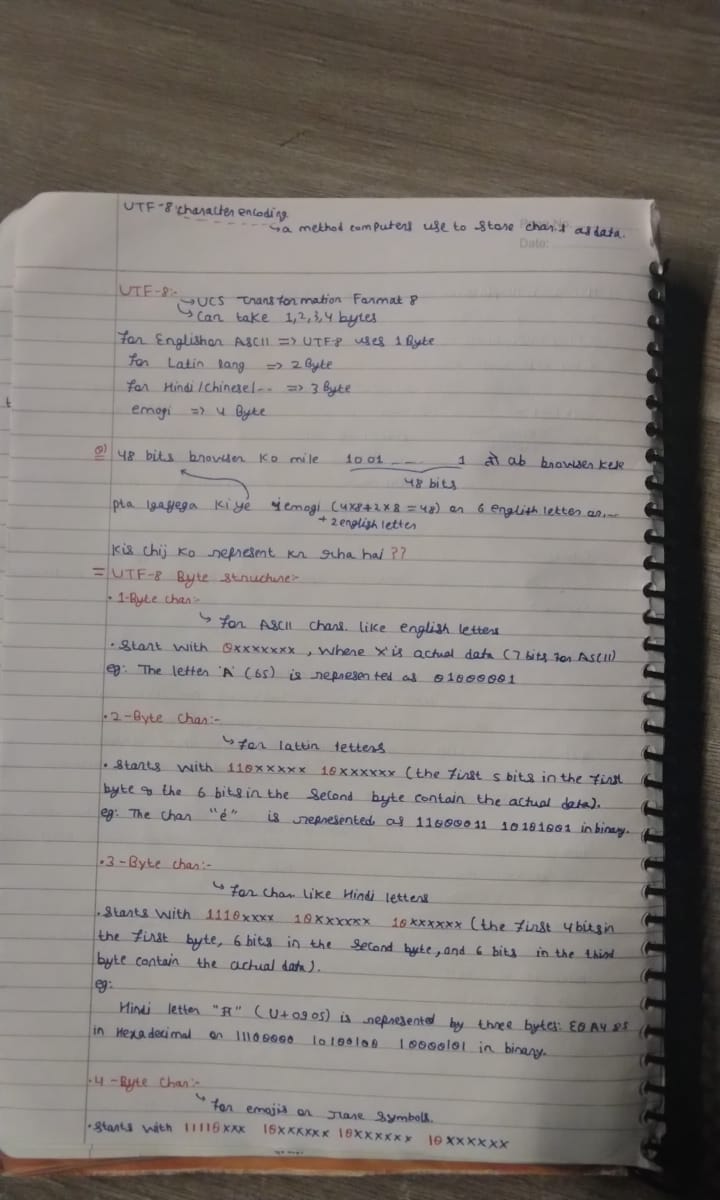 UTF-8 character encoding
↳ a method computers use to store char.s as data.
Date:
UTF-8:-
↳ UCS Transformation Format 8
↳ Can take 1,2,3,4 bytes
for English or ASCII => UTF-8 uses 1 Byte
for Latin lang => 2 Byte
for Hindi/Chinese/-- => 3 Byte
emogi => 4 Byte
Q) 48 bits browser ko mile 1001 ---- 1 तो ab browser kese
48 bits
pta lgayega ki ye 1 emogi (4x8+2x8=48) or 6 english letter or....
+ 2 english letter
Kis chij ko represent kr rha hai ??
= UTF-8 Byte Structure:-
• 1-Byte char:-
↳ for ASCII chars. like english letters
• Start with 0xxxxxxx, where 'x' is actual data (7 bits for ASCII)
eg: The letter 'A' (65) is represented as 01000001
• 2-Byte char:-
↳ for lattin letters
• Starts with 110xxxxx 10xxxxxx (the first 5 bits in the first
byte & the 6 bits in the second byte contain the actual data).
eg: The char "é" is represented as 11000011 10101001 in binary.
• 3-Byte char:-
↳ for char like Hindi letters
• Starts with 1110xxxx 10xxxxxx 10xxxxxx (the first 4 bits in
the first byte, 6 bits in the second byte, and 6 bits in the third
byte contain the actual data).
eg:
Hindi letter "अ" (U+0905) is represented by three bytes: E0 A4 85
in Hexadecimal or 11100000 10100100 10000101 in binary.
• 4-Byte char:-
↳ for emojis or rare symbols.
• Starts with 11110xxx 10xxxxxx 10xxxxxx 10xxxxxx